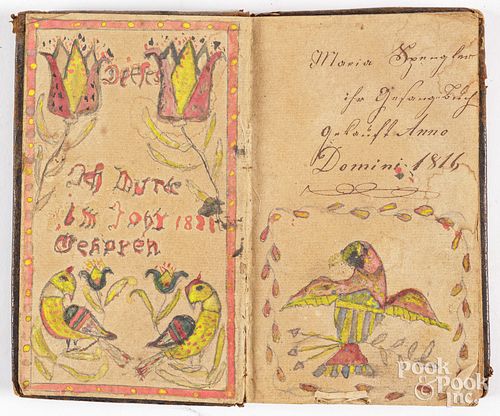 Dieses
Ich Wurde
im Johr 18
Gehoren
Maria Spengler
ihr Gesang Buch
gekauft Anno
Domini 1816
Pook & Pook Inc.